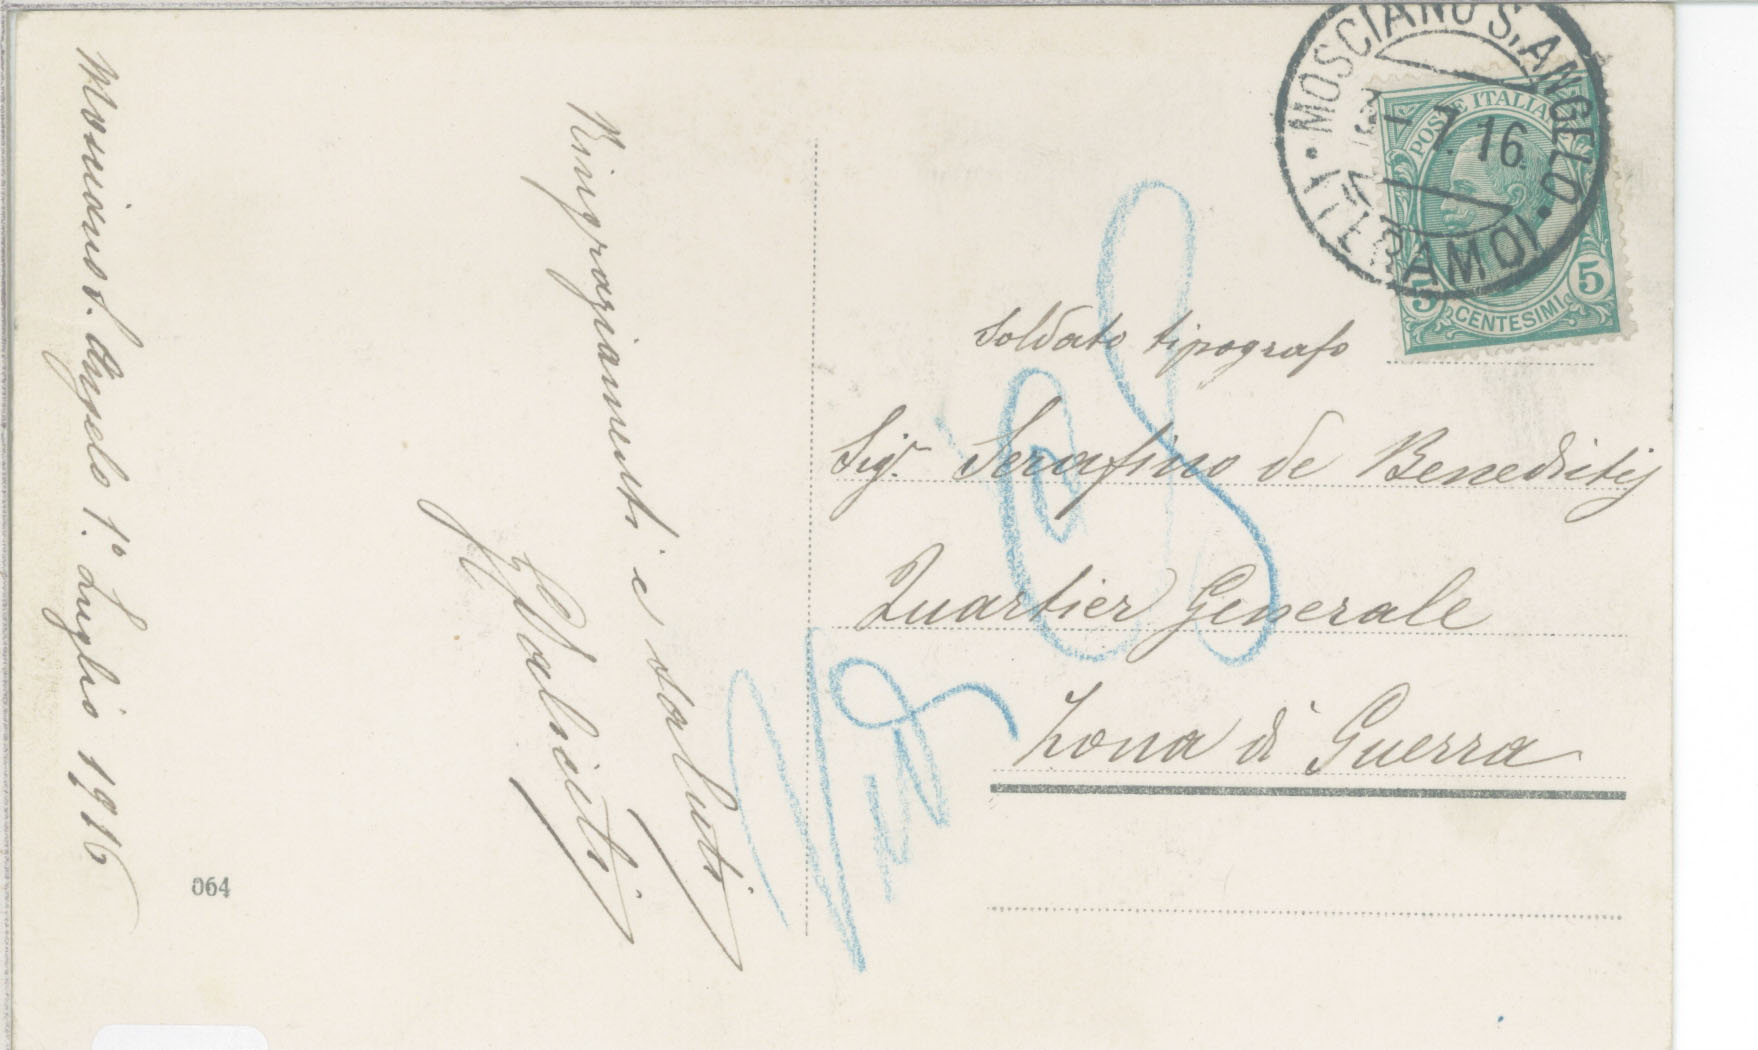 Mosciano S. Angelo 1.° Luglio 1916
Ringraziamenti e saluti
MOSCIANO S. ANGELO
(TERAMO)
7. 16
POSTE ITALIANE
5 5
CENTESIMI
Soldato tipografo
Sigr. Serafino de Benedictis
Quartier Generale
Zona di Guerra
064